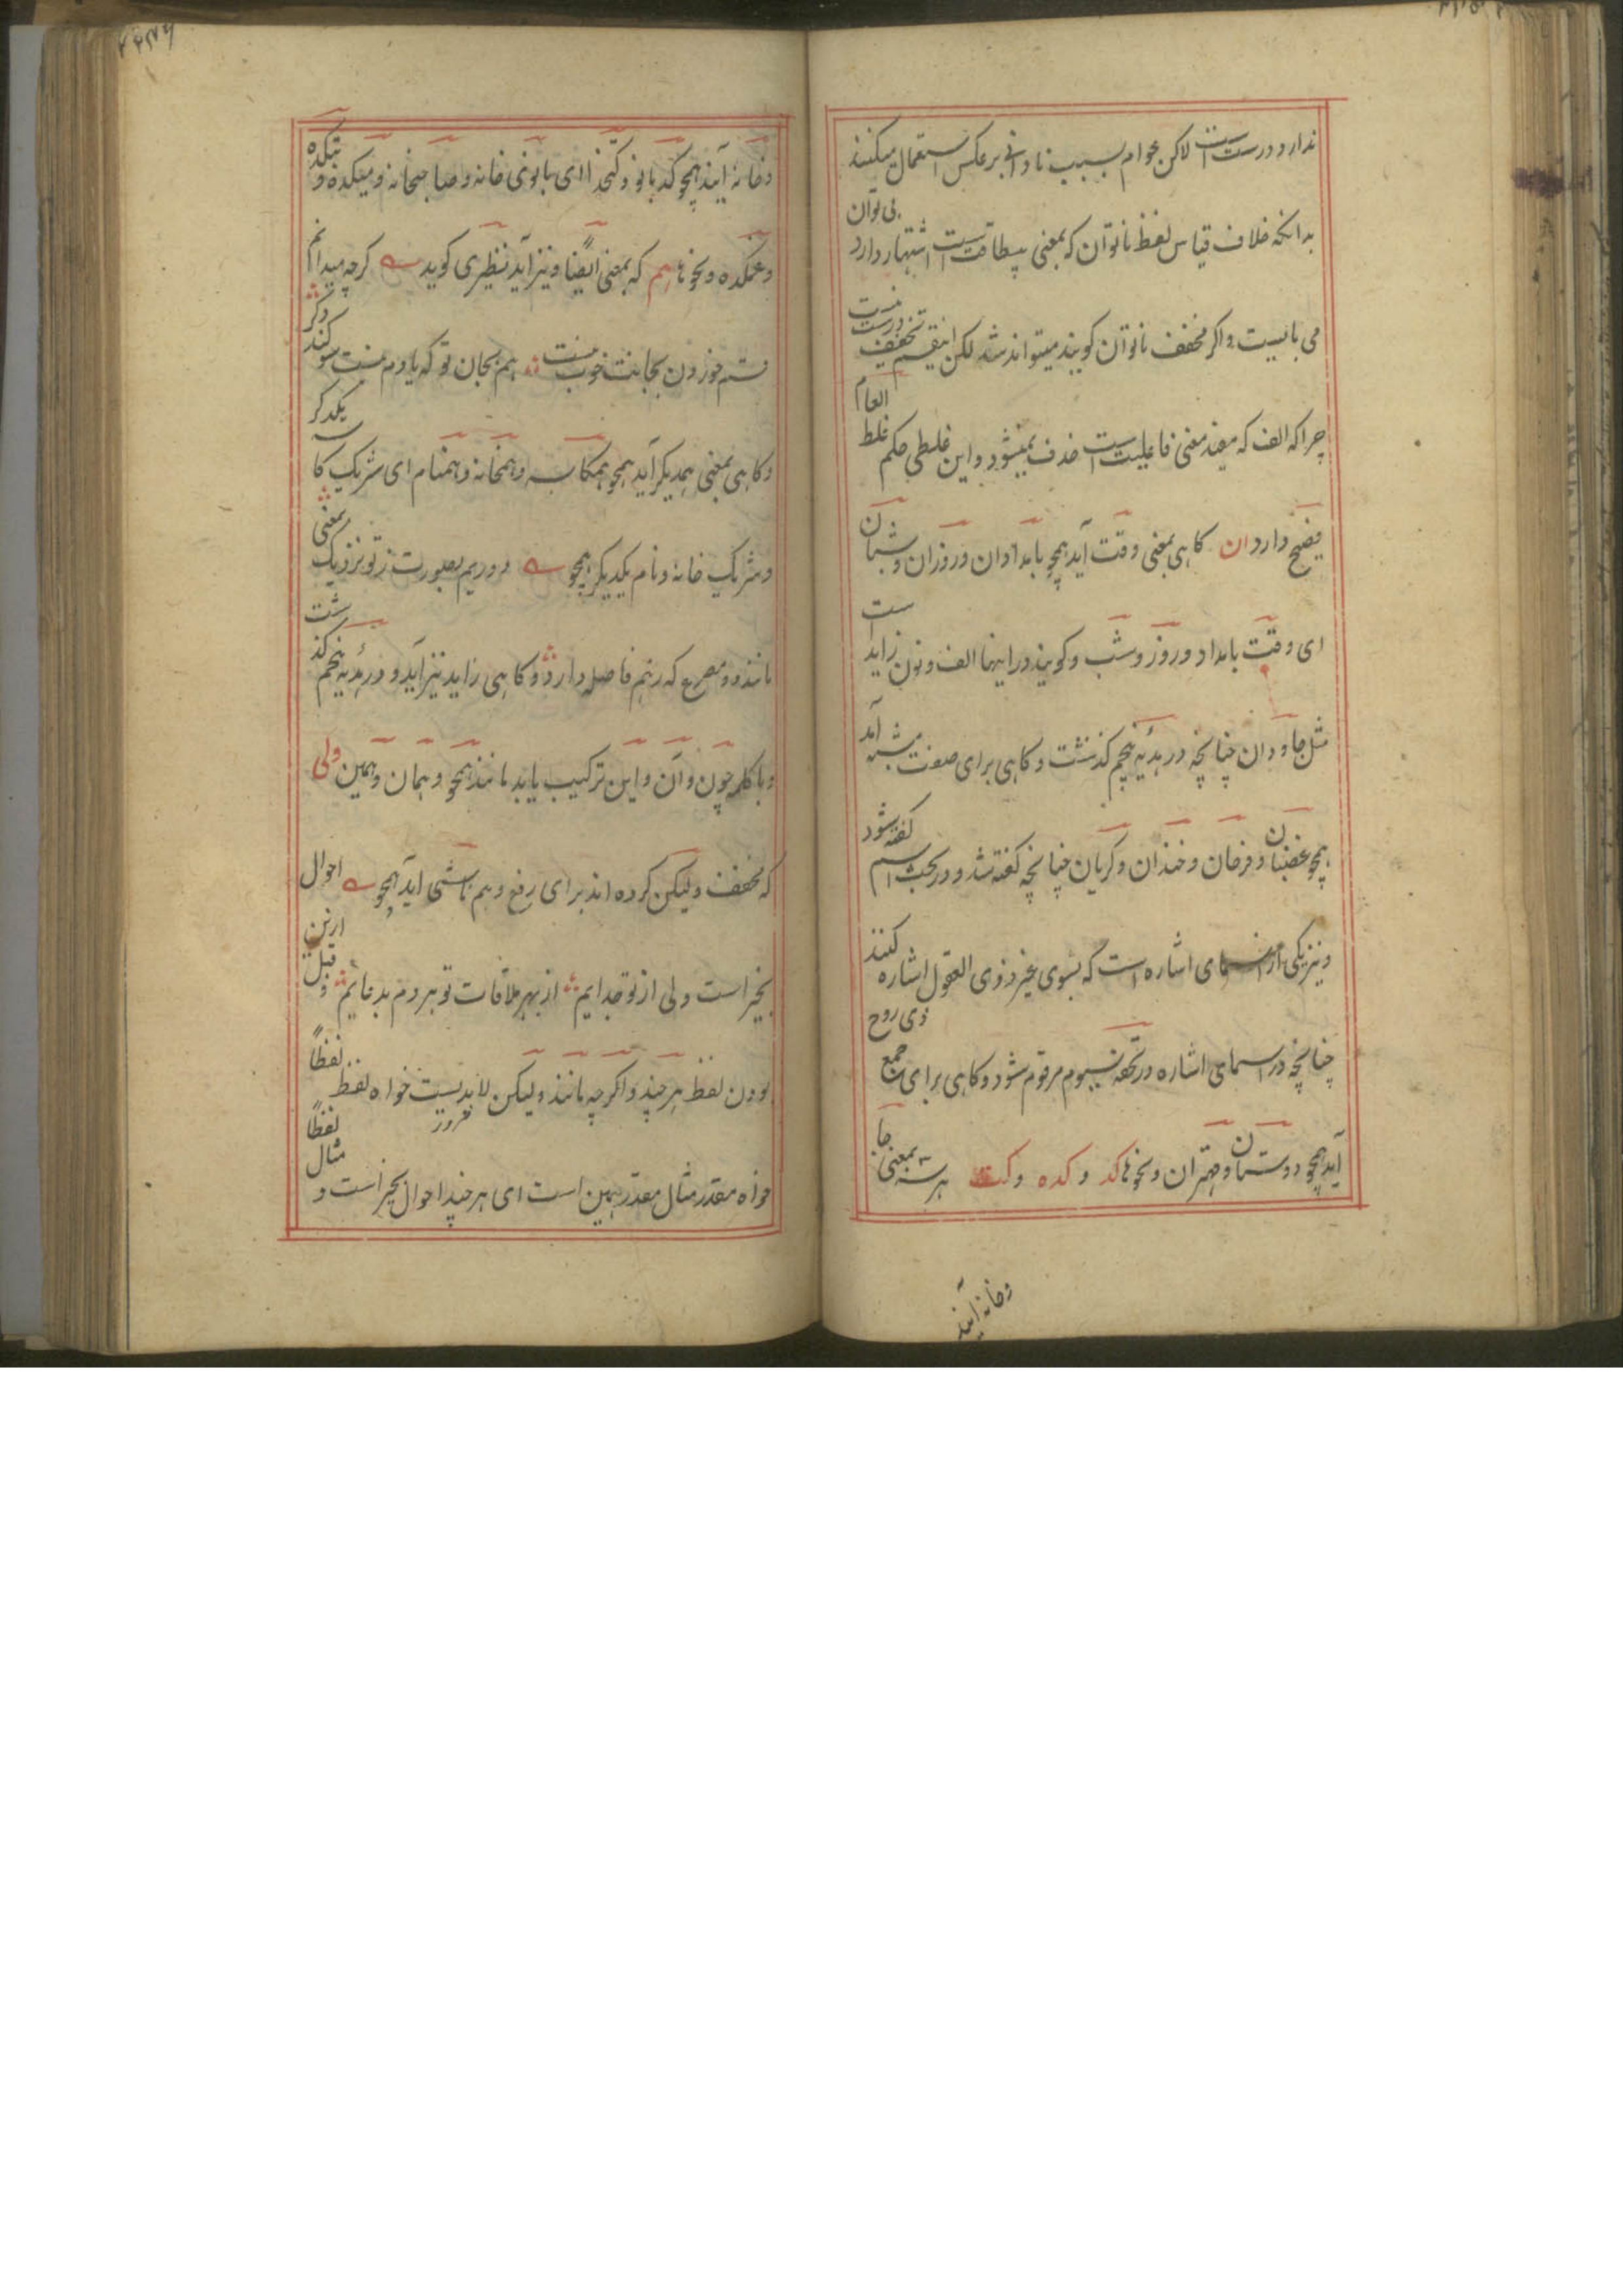 ندارد درست است لاکن عوام بسبب نادانی برعکس استعمال میکنند
بدانکه خلاف قیاس لفظ ناتوان که بمعنی بیطاقت است اشتهار دارد بی توان
می بایست و اگر مخفف ناتوان گویند میتواند شد لکن اینقسم تخفیف درست نیست
چرا که الف که مفید معنی فاعلیت است حذف نمیشود و این غلطی حکم غلط العام
فصیح دارد ان کاهی بمعنی وقت آید همچو بامدادان و روزان و شبان
ای وقت بامداد و روز و شب و کویند در اینها الف و نون زاید است
مثل جاودان چنانچه در هدیه پنجم کذشت و کاهی برای صفت مشبه آمد
همچو غضبان و فرحان و خندان و کریان چنانچه کفته شد و در بحث اسم کفته شود
و نیز یکی از اسمای اشاره است که بسوی غیر ذوی العقول اشاره کنند
چنانچه در اسمای اشاره در تحفه سیوم مرقوم شود و کاهی برای جمع ذی روح
آید همچو دوستان و مهتران و نحوها کد و کده و کت هر سه بمعنی جا
وخانه آیند
وخانه آیند همچو کدبانو و کتخدا ای بانوی خانه و صاحبخانه و میکده و بتکده
و غمکده و نحوها هم که بمعنی ایضا و نیز آید نظیری کوید کرچه میدانم
قسم خوردن بجانت خوب نیست هم بجان تو که یادم نیست سوکند دکر
و کاهی بمعنی همدیکر آید همچو همکاسه و همخانه و همنام ای شریک کا
و شریک خانه و نام یکدیکر همچو دوریم بصورت ز تو نزدیک بمعنی
مانند دو مصرع که ز هم فاصله دارد و کاهی زاید نیز آید و در هدیه پنجم کذشت
و با کلمه چون و آن و این ترکیب یابد مانند همچو و همان و همین ولی
که مخفف ولیکن کرده اند برای رفع وهم ناشی آید همچو احوال
بخیر است ولی از تو جدایم از بهر ملاقات تو هر دم بدعایم و قبل ازین
بودن لفظ هر چند و اکرچه مانند ولیکن لابدیست خواه لفظ لفظاً
خواه مقدر مثال مقدر همین است ای هر چند احوال بخیر است و مثال لفظاً